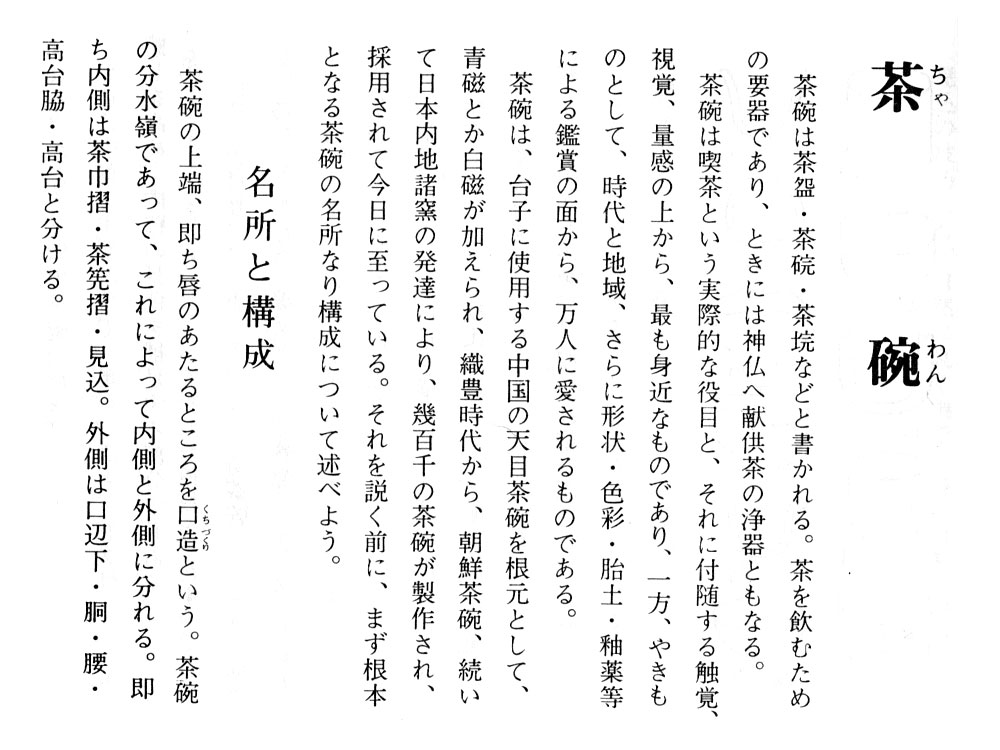 茶碗
ちゃわん
茶碗は茶盌・茶碗・茶埦などと書かれる。茶を飲むため
の要器であり、ときには神仏へ献供茶の浄器ともなる。
茶碗は喫茶という実際的な役目と、それに付随する触覚、
視覚、量感の上から、最も身近なものであり、一方、やきも
のとして、時代と地域、さらに形状・色彩・胎土・釉薬等
による鑑賞の面から、万人に愛されるものである。
茶碗は、台子に使用する中国の天目茶碗を根元として、
青磁とか白磁が加えられ、織豊時代から、朝鮮茶碗、続い
て日本内地諸窯の発達により、幾百千の茶碗が製作され、
採用されて今日に至っている。それを説く前に、まず根本
となる茶碗の名所なり構成について述べよう。
名所と構成
茶碗の上端、即ち唇のあたるところを口造という。茶碗
くちづくり
の分水嶺であって、これによって内側と外側に分れる。即
ち内側は茶巾摺・茶筅摺・見込。外側は口辺下・胴・腰・
高台脇・高台と分ける。